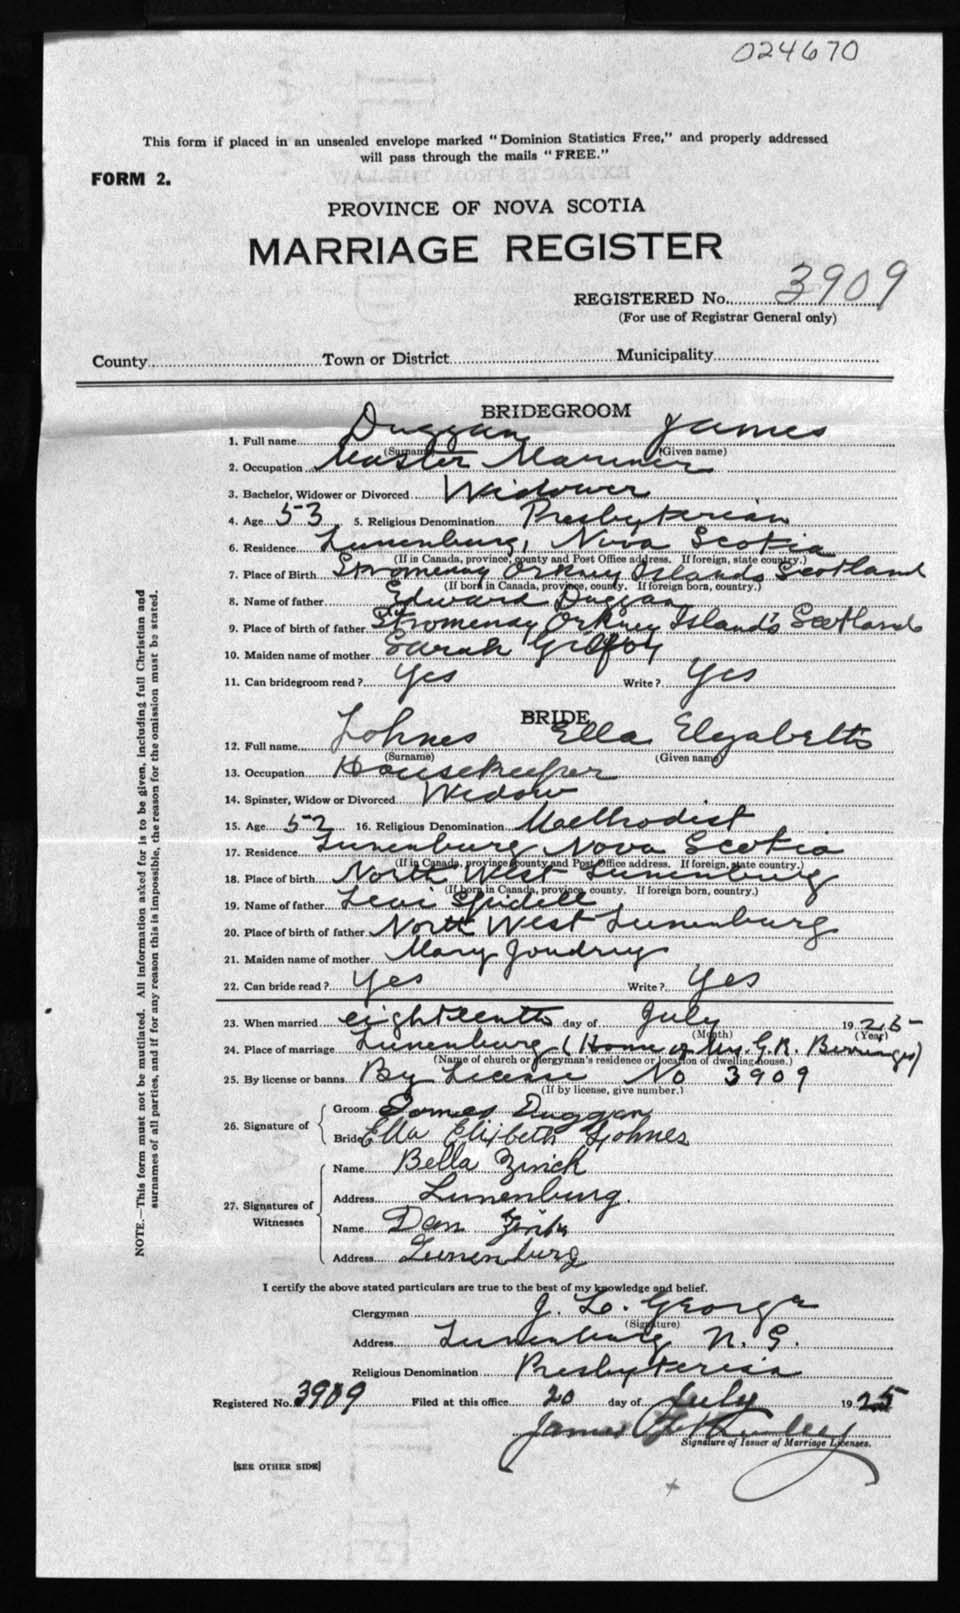 024670
This form if placed in an unsealed envelope marked "Dominion Statistics Free," and properly addressed
will pass through the mails "FREE."
FORM 2.
PROVINCE OF NOVA SCOTIA
MARRIAGE REGISTER
REGISTERED No. 3909
(For use of Registrar General only)
County Town or District Municipality
BRIDEGROOM
1. Full name Duggan James
(Surname) (Given name)
2. Occupation Master Mariner
3. Bachelor, Widower or Divorced Widower
4. Age 53 5. Religious Denomination Presbyterian
6. Residence Lunenburg, Nova Scotia
(If in Canada, province, county and Post Office address. If foreign, state country.)
7. Place of Birth Stromenay Orkney Islands Scotland
(If born in Canada, province, county. If foreign born, country.)
8. Name of father Edward Duggan
9. Place of birth of father Stromenay Orkney Islands Scotland
10. Maiden name of mother Sarah
11. Can bridegroom read? Yes Write? Yes
BRIDE
12. Full name Lohnes Ella Elizabeth
(Surname) (Given name)
13. Occupation Housekeeper
14. Spinster, Widow or Divorced Widow
15. Age 52 16. Religious Denomination Methodist
17. Residence Lunenburg Nova Scotia
(If in Canada, province county and Post Office address. If foreign, state country.)
18. Place of birth North West Lunenburg
(If born in Canada, province, county. If foreign born, country.)
19. Name of father Levi Spidell
20. Place of birth of father North West Lunenburg
21. Maiden name of mother Mary Joudrey
22. Can bride read? Yes Write? Yes
23. When married eighteenth day of July 1925
(Month) (Year)
24. Place of marriage Lunenburg (Home of Mrs. G.R. Berringer)
(Name of church or clergyman's residence or location of dwelling house.)
25. By license or banns By License No 3909
(If by license, give number.)
26. Signature of
Groom James Duggan
Bride Ella Elizbeth Lohnes
27. Signatures of Witnesses
Name Bella Zinck
Address Lunenburg.
Name Dan Zinck
Address Lunenburg
I certify the above stated particulars are true to the best of my knowledge and belief.
Clergyman J. L. George
(Signature)
Address Lunenburg N. S.
Religious Denomination Presbyterian
Registered No. 3909 Filed at this office 20 day of July 1925
James
Signature of Issuer of Marriage Licenses.
[SEE OTHER SIDE]
NOTE.—This form must not be mutilated. All information asked for is to be given, including full Christian and
surnames of all parties, and if for any reason this is impossible, the reason for the omission must be stated.